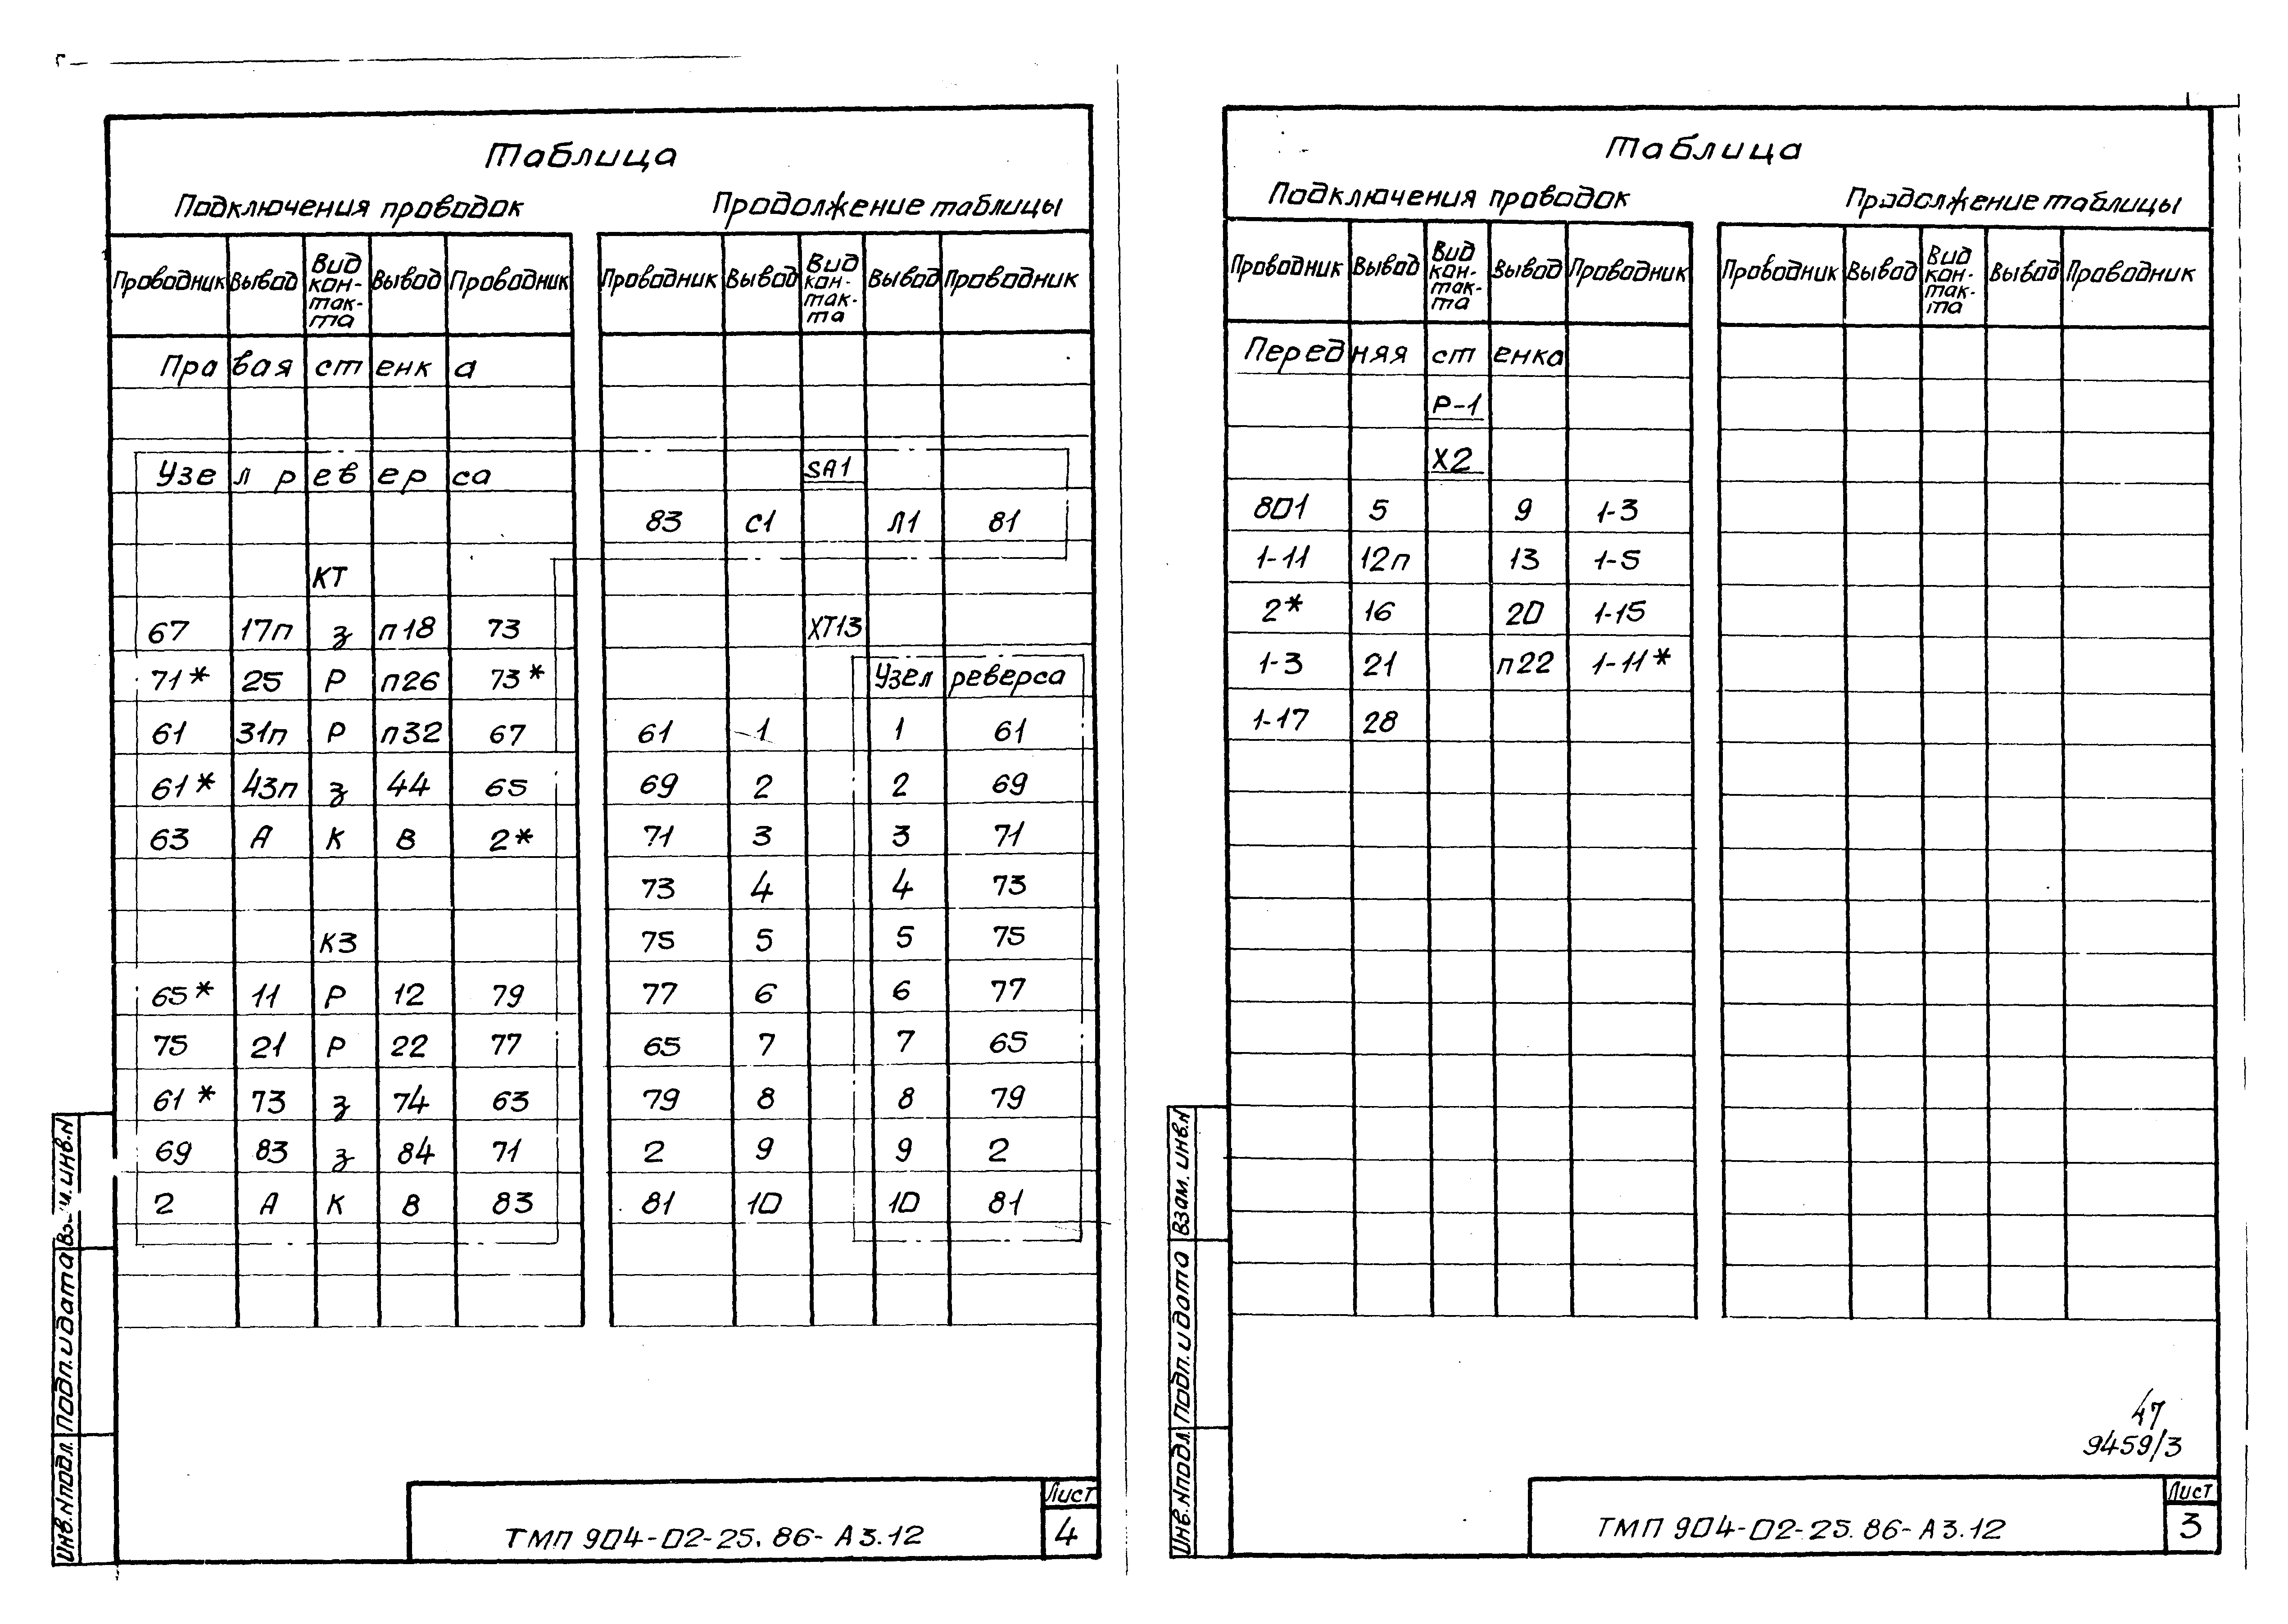 Таблица
Подключения проводок
Продолжение таблицы
Проводник Вывод Вид кон-так-та Вывод Проводник
Проводник Вывод Вид кон-так-та Вывод Проводник
Правая стенка
Узел реверса
КТ
67 17п з п18 73
71* 25 Р п26 73*
61 31п Р п32 67
61* 43п з 44 65
63 А К В 2*
К3
65* 11 Р 12 79
75 21 Р 22 77
61* 73 з 74 63
69 83 з 84 71
2 А К В 83
SA1
83 С1 Л1 81
ХТ13
Узел реверса
61 1 1 61
69 2 2 69
71 3 3 71
73 4 4 73
75 5 5 75
77 6 6 77
65 7 7 65
79 8 8 79
2 9 9 2
81 10 10 81
Инв.Nподл. Подп.и дата инв.N
ТМП 904-02-25.86-А3.12
Лист
4
Таблица
Подключения проводок
Продолжение таблицы
Проводник Вывод Вид кон-так-та Вывод Проводник
Проводник Вывод Вид кон-так-та Вывод Проводник
Передняя стенка
Р-1
Х2
801 5 9 1-3
1-11 12п 13 1-5
2* 16 20 1-15
1-3 21 п22 1-11*
1-17 28
Инв.Nподл. Подп.и дата Взам.инв.N
47
9459/3
ТМП 904-02-25.86-А3.12
Лист
3